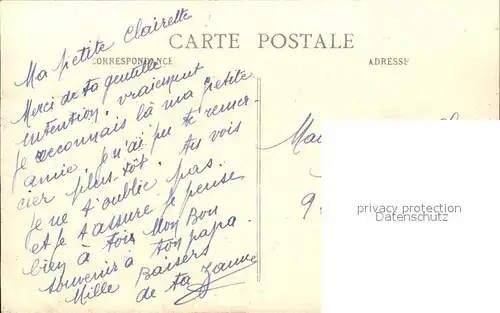 CARTE POSTALE
CORRESPONDANCE
ADRESSE
Ma petite Clairette
Merci de ta gentille
intention, vraiement
Je reconnais là ma petite
amie. Je n'ai pu te remer-
cier plus-tôt. Tu vois
Je ne t'oublie pas.
et je t'assure je pense
bien à toi. Mon Bon
souvenir à ton papa.
Mille Baisers
de ta Jeanne
9
privacy protection
Datenschutz